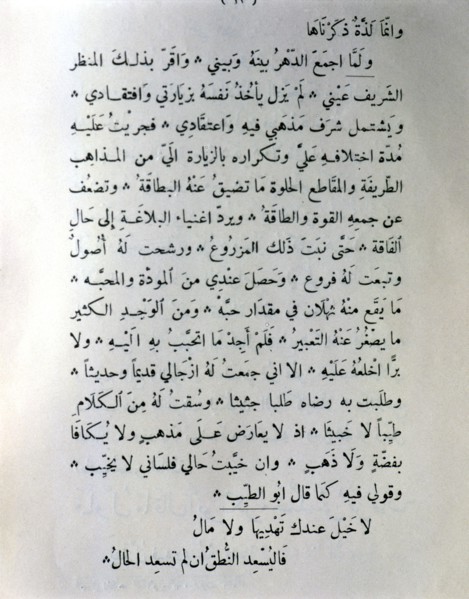 وانّما لذّةٌ ذكرناها
ولَمَّا اجمَعَ الدّهْرُ بينَهُ وبَيني * وَاقَرّ بذلك المنظر
الشريف عَيْني * لَمْ يَزل يأخُذُ نفسَهُ بزيارتي وَافتقادي *
وَيشتمل شرَف مَذهبي فيهِ وَاعتقادي * فجريْتُ عَلَيْهِ
مُدّة اختلافِهِ عَليَّ وتكراره بالزيارة الَيّ من المذاهِب
الطّريفَةِ والمقَاطع الحلوة مَا تضيقُ عَنْهُ البطاقَةُ * وتضعُف
عن جمعِهِ القوة والطاقَةُ * ويردّ اغنياء البلاغَةِ إلى حَالِ
الفاقة * حَتَّى نبَتَ ذَلك المَزرُوعُ * ورشحت لَهُ أصُولٌ
وتبعَت لَهُ فروع * وَحَصَلَ عندي منَ المودّة والمحبّه *
مَا يَقَع منهُ ثهْلان في مقدَار حَبَّهْ * وَمنَ الوَجْدِ الكثير
ما يصْغُر عَنْهُ التعبيرُ * فَلَمْ أجدْ مَا اتحَبَّبُ بهِ الَيْهِ * ولا
برًّا اخلعُهُ عَلَيْهِ * الا اني جمعتُ لهُ ازجالي قديماً وحديثاً *
وطلبت به رضاه طلبا حثيثا * وسُقتُ لَهُ مِنَ الكَلَامِ
طيِّباً لا خبيثا * اذ لا يعارَض عَلَى مَذهبٍ ولا يُكافَا
بفضّةٍ وَلَا ذَهبٍ * وان خيَّبتُ حالي فلسَاني لا يخيِّب *
وقولي فيهِ كمَا قال ابُو الطيّب *
لا خَيْلَ عندك تهْديهَا ولا مَالُ
فَاليُسْعِد النُّطقُ ان لم تسعِد الحَالُ *